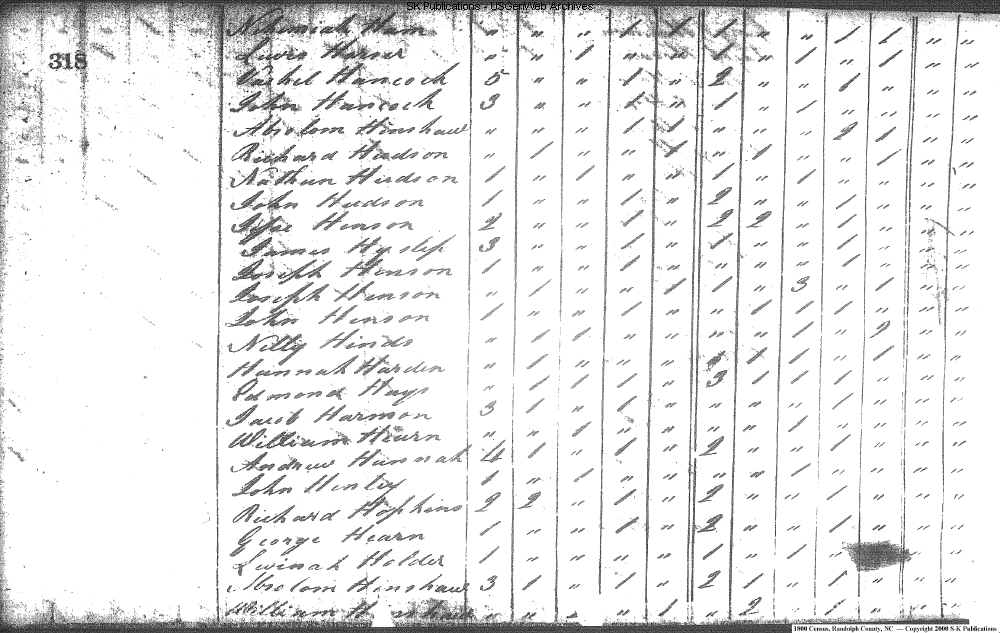 SK Publications - USGenWeb Archives
318
Nehemiah Ham " " " 1 1 1 " " 1 1 " "
Lewis " " 1 " " 1 " 1 " 1 " "
Hancock 5 " " 1 " 2 " " 1 " " "
John Hancock 3 " " 1 " 1 " 1 " " " "
Absolom Hinshaw " " " 1 1 " " " 2 1 " "
Richard Hudson " 1 " " 1 " 1 " " 1 " "
Nathan Hudson 1 " 1 " " 1 " 1 " " " "
John Hudson 1 " " 1 " 2 " " 1 " " "
Henson 2 " " 1 " 2 2 " 1 " " "
James Hyslip 3 " " 1 " 1 " " 1 " " "
Joseph Henson 1 " " 1 " " " " 1 " " "
Joseph Henson " 1 " " 1 1 " 3 " 1 " "
John Henson 1 " " 1 " " 1 1 " " " "
Hinds " 1 1 " " " " 1 " 2 " "
Hannah Harden " 1 " " " 1 1 " 1 " "
Edmond Hays " 1 1 1 " 3 1 1 1 " " "
Jacob Harmon 3 1 " 1 " " " " 1 " " "
William Hearn " " 1 " " " " 1 " " " "
Andrew Hannah 4 1 " 1 " 2 " " 1 " " "
John Henley 1 " 1 " " " " 1 " " " "
Richard Hopkins 2 2 " 1 " 2 " " 1 " " "
George Hearn 1 " " 1 " 2 " " 1 " " "
Holder 1 " " " " 1 " 1 " " "
Absolom Hinshaw 3 1 " 1 " 2 1 " 1 " " "
William " " " 1 " 2 1 " " "
1800 Census, Randolph County, NC — Copyright 2000 S-K Publications